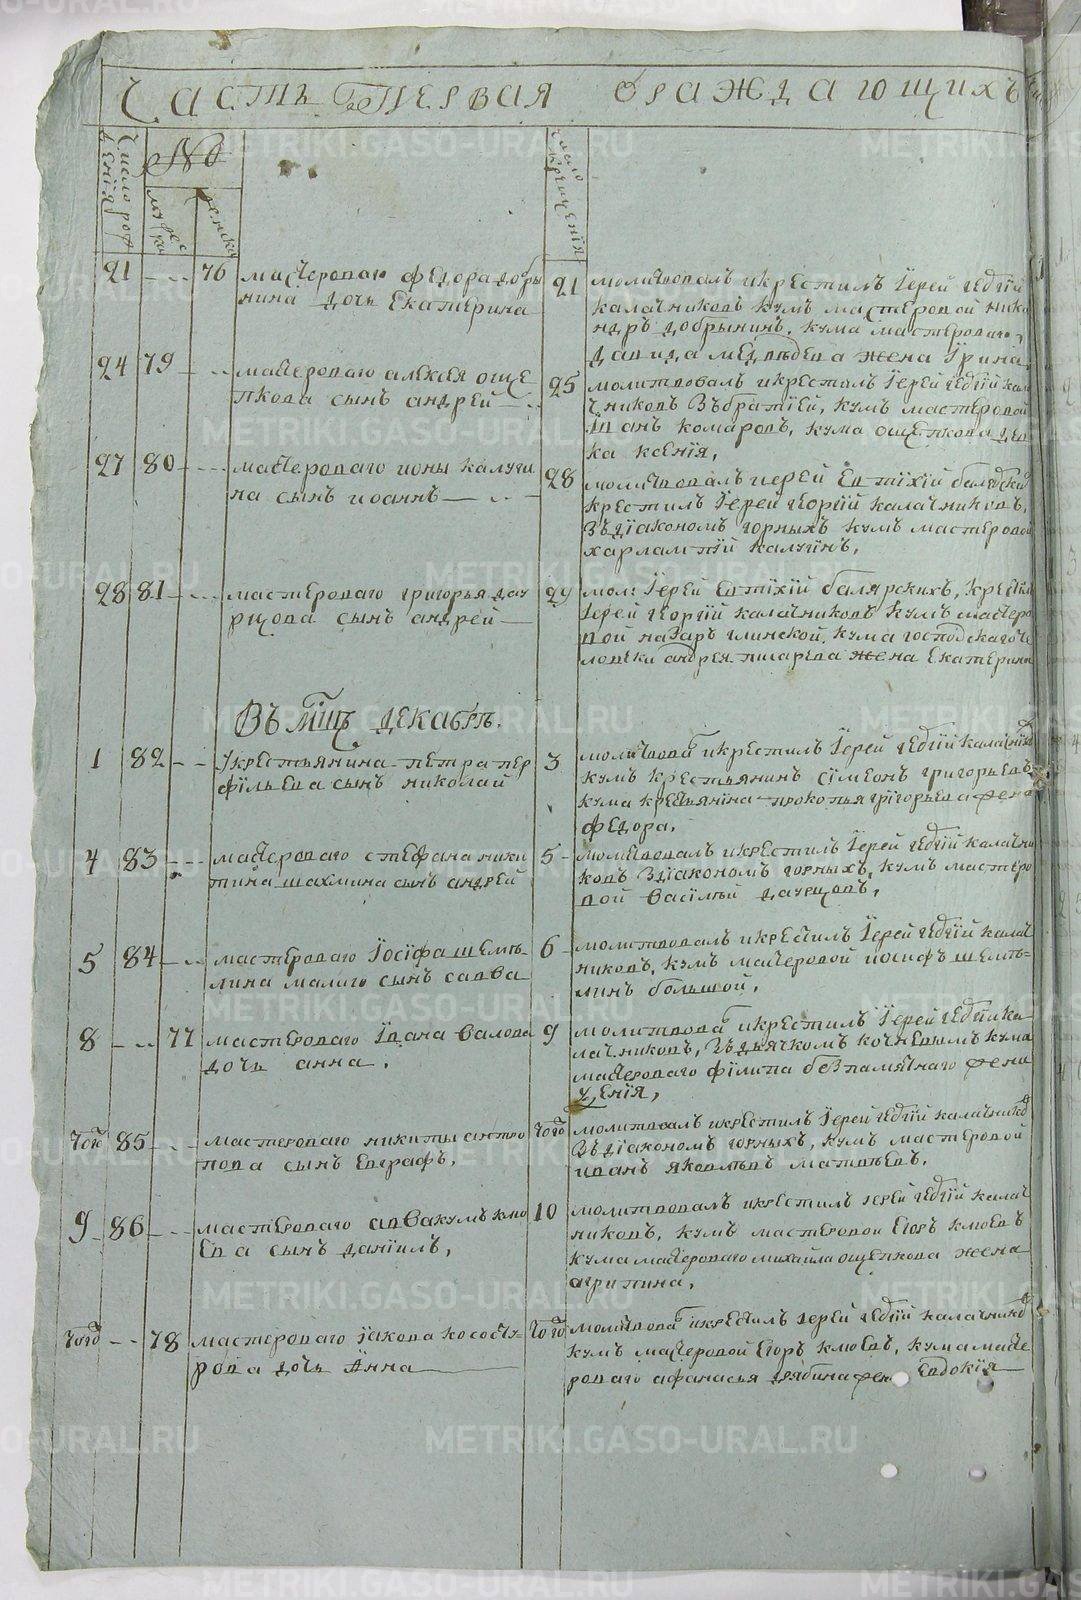 Часть Первая ораждающихъ
Число рождения
№
мужеска
женска
число крещенія
21 - - - 76 мастероваго федора добры
нина дочь Екатерина
21 молитвовалъ икрестилъ Іерей геѡгій
калачниковъ кумъ мастеровой ника
ндръ добрынинъ, кума мастероваго
давида медведева жена Ірина
24 79 - - - мастероваго алексея още
пкова сынъ андрей
25 молитвовалъ икрестилъ Іерей геѡгій кал
чниковъ Възбратіей, кумъ мастеровой
Іванъ комаровъ, кума ощепкова дев
ка ксенія,
27 80 - - - мастероваго ионы калуги
на сынъ иоаннъ
28 молитвовалъ иерей Евтіхій балярски
крестилъ Іерей георгій калачниковъ,
Въдіакономъ горныхъ кумъ мастеровой
харлампій калугинъ,
28 81 - - - мастероваго григорья дау
рцова сынъ андрей
29 мол: Іерей Евтіхій балярскихъ, крестилъ
Іерей георгій калачниковъ кумъ мастеро
вой назаръ глинской, кума господскаго че
ловека андрея писарева жена Екатерина
Въ мцѣ декабрѣ.
1 82 - - Укрестьянина петра пер
фільева сынъ николай
3 молитвова икрестилъ Іерей геѡгій калачник
кумъ крестьянинъ сімеонъ григорьевъ
кума крестьяніна прокопья грігорьева жена
федора,
4 83 - - - мастероваго стефана ники
тина шахмина сынъ андрей
5 - молитвовалъ икрестилъ Іерей геѡгій калачни
ковъ здіакономъ горныхъ, кумъ мастеро
вой василій даурцовъ,
5 84 - - - мастероваго Іосіфа шемѣ-
лина малаго сынъ савва
6 - молитвовалъ икрестилъ Іерей геѡгій калач
никовъ, кумъ мастеровой иосифъ шемѣ-
линъ большой,
8 - - - 77 мастероваго Івана валова
дочь анна,
9 молитвова икрестилъ Іерей геѡгій ка-
лачниковъ, Въздьячкомъ кочневымъ кума
мастероваго філипа безпамятнаго жена
Уенія,
того 85 - - мастероваго никиты антро
пова сынъ Евграфъ,
того молитвовалъ икрестилъ Іерей геѡгій калачников
Въдіакономъ горныхъ, кумъ мастеровой
иванъ яковлевъ матвѣевъ,
9 - 86 - - мастероваго аввакумъ клю
ева сынъ даніилъ,
10 молитвовалъ икрестилъ иерей геѡгій калач
никовъ, кумъ мастеровой Егоръ клюевъ
кума мастероваго михайла ощепкова жена
агрипина,
того - - 78 мастероваго Іакова кособу
рова дочь Анна
того молитвова икрестилъ иерей геѡгій калачников
кумъ мастеровой Егоръ клюевъ, кума масте
роваго афанасья дрябина жен Евдокія